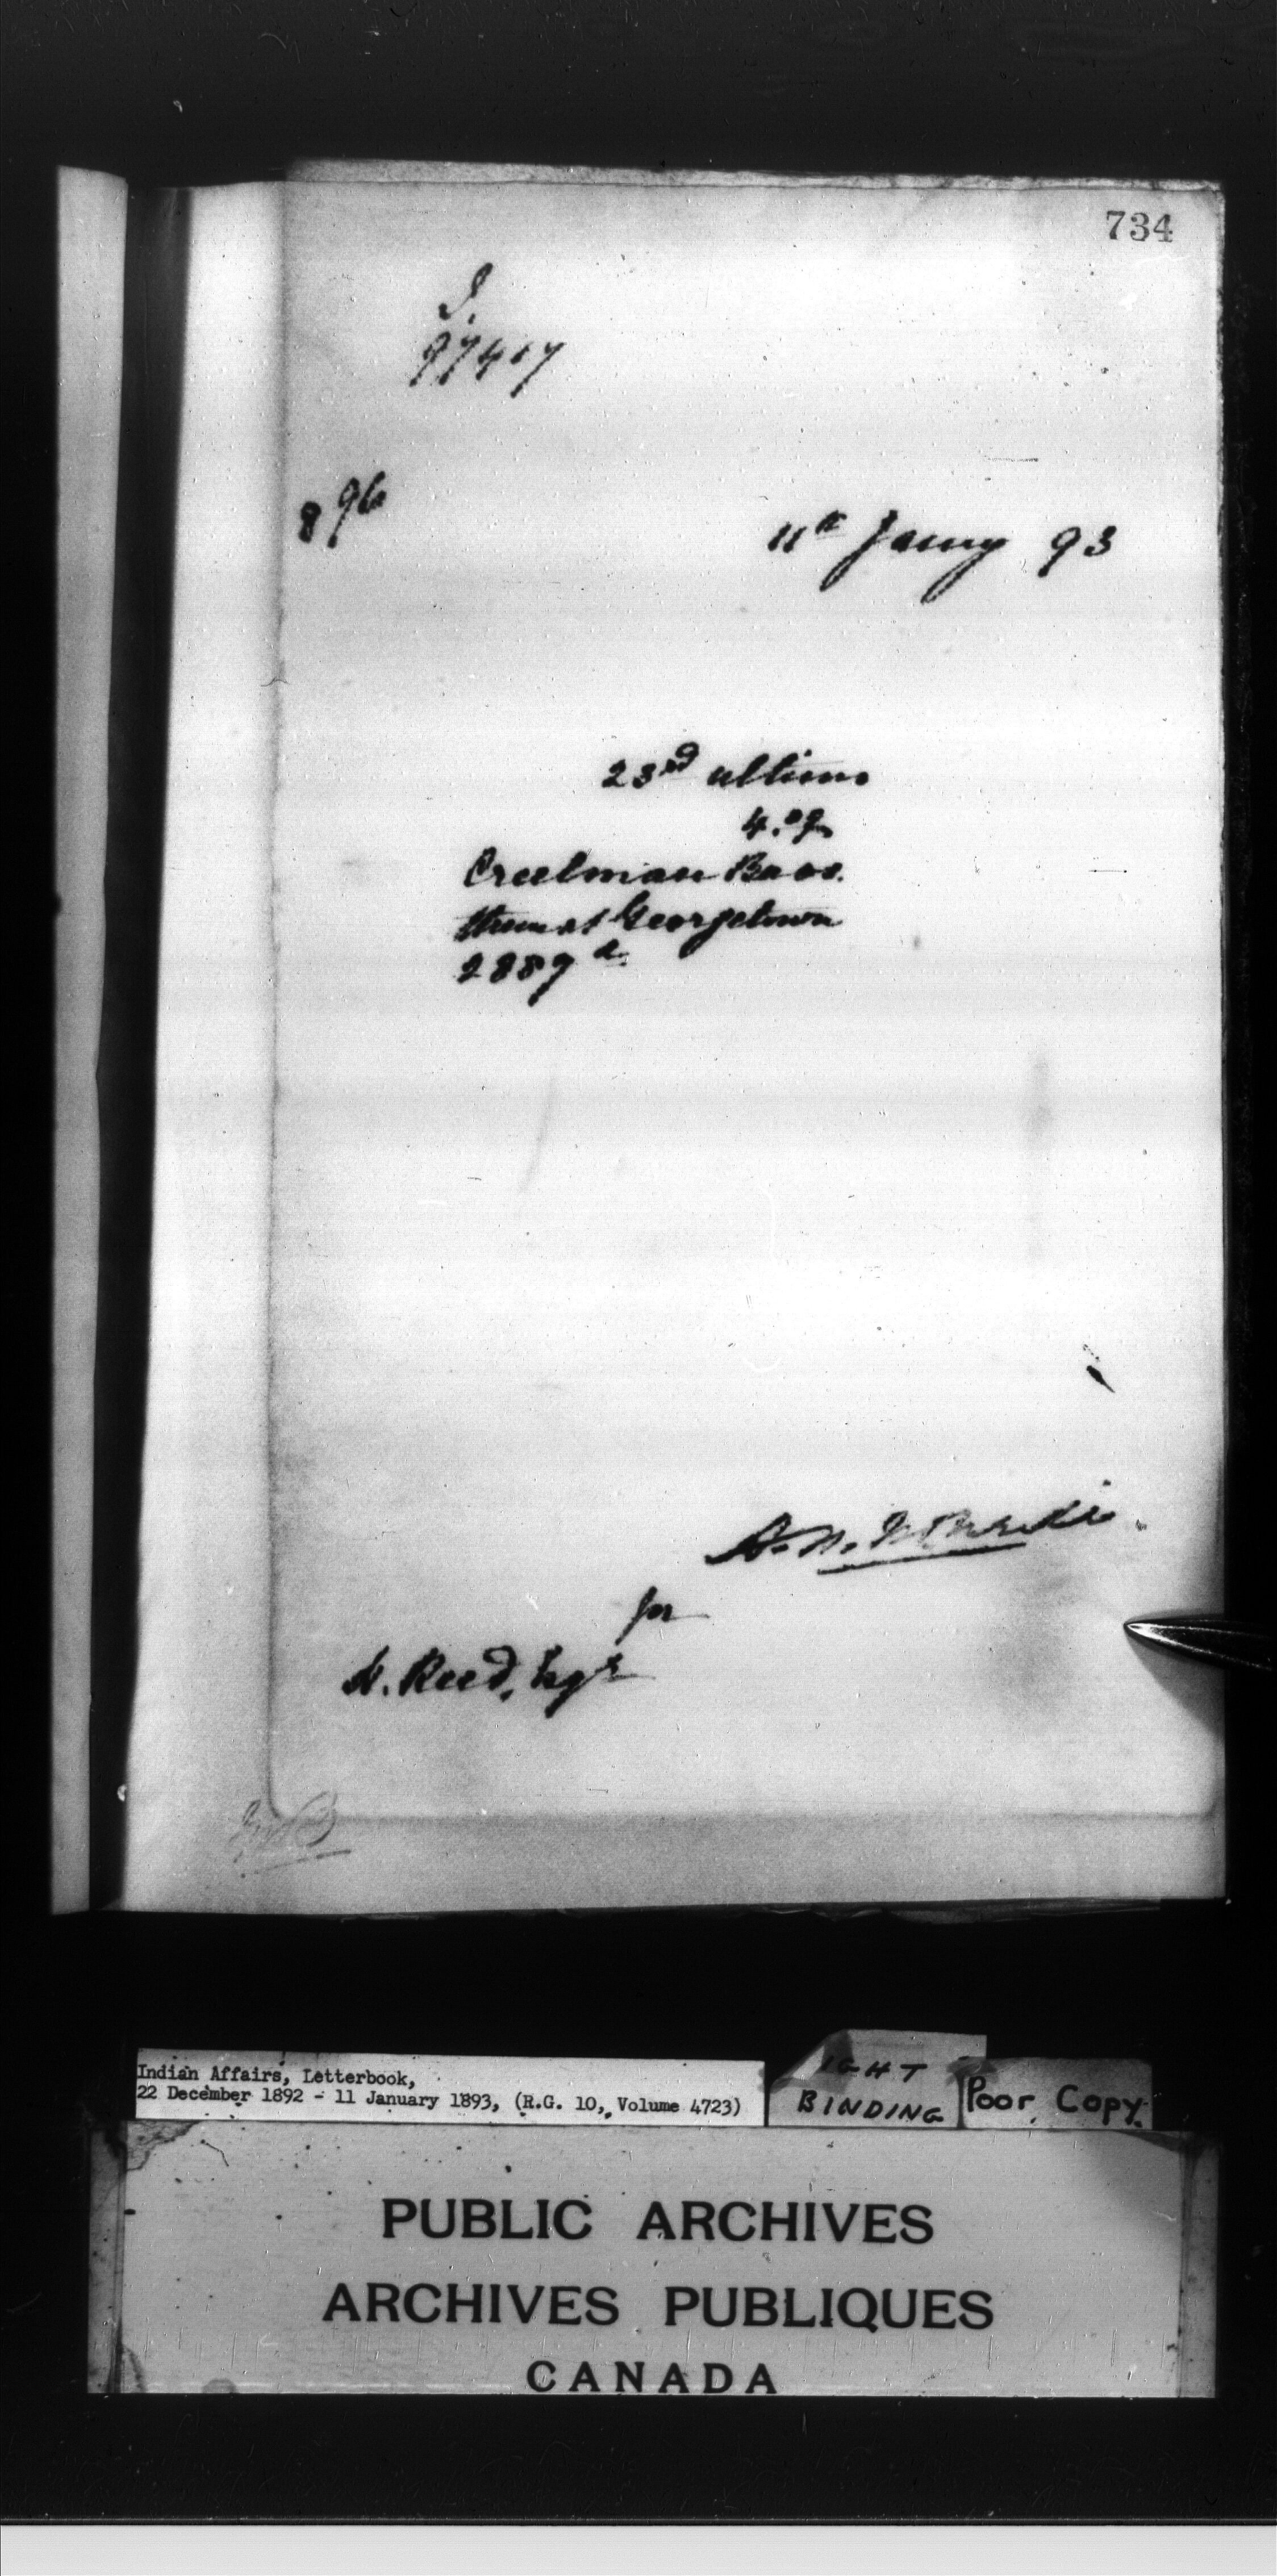 734
97417
896
11th Jany 93
23rd ultimo
Creelman Bros.
them at Georgetown
2889
for
H. Reed, Esqr
Indian Affairs, Letterbook,
22 December 1892 - 11 January 1893, (R.G. 10, Volume 4723)
IGHT
BINDING
Poor Copy.
PUBLIC ARCHIVES
ARCHIVES PUBLIQUES
CANADA